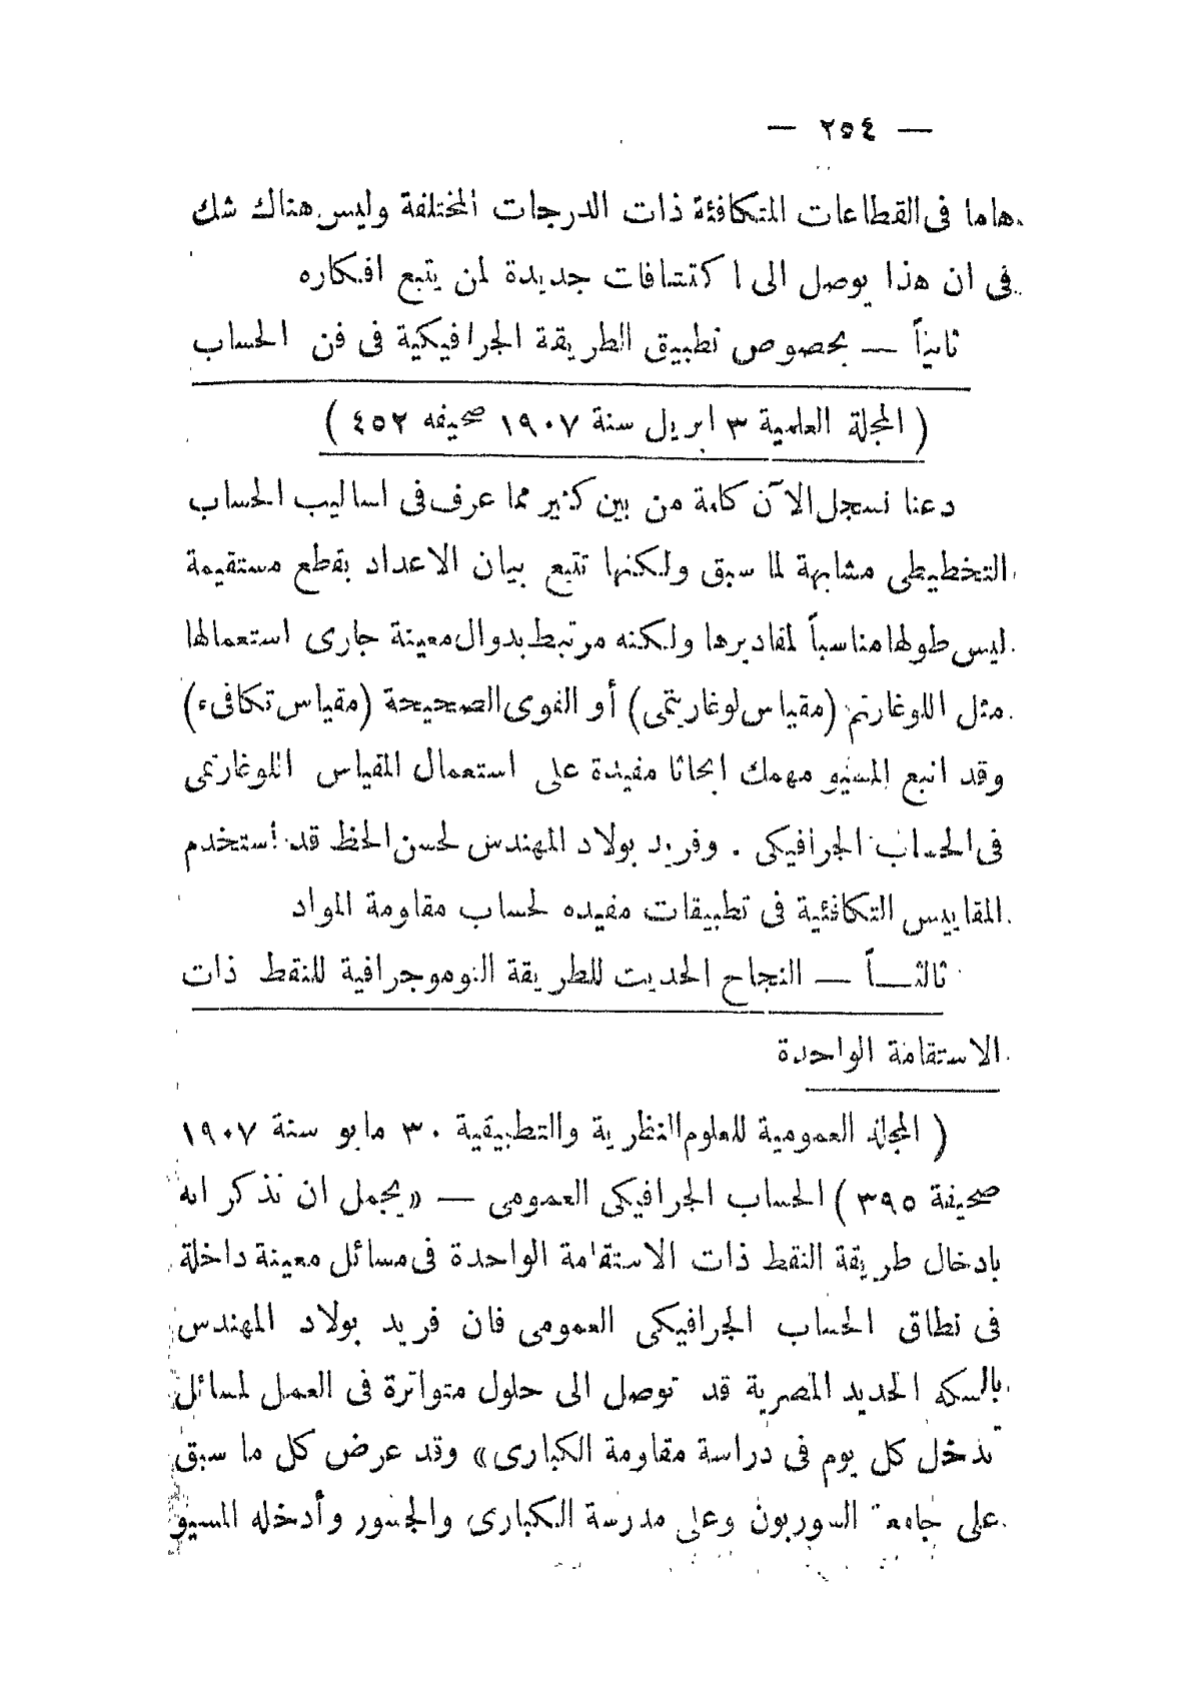 — ٢٥٤ —
هاما فى القطاعات المتكافئة ذات الدرجات المختلفة وليس هناك شك
فى ان هذا يوصل الى اكتشافات جديدة لمن يتبع افكاره
ثانياً — بخصوص تطبيق الطريقة الجرافيكية فى فن الحساب
( المجلة العلمية ٣ ابريل سنة ١٩٠٧ صحيفه ٤٥٢ )
دعنا نسجل الآن كلمة من بين كثير مما عرف فى اساليب الحساب
التخطيطى مشابهة لما سبق ولكنها تتبع بيان الاعداد بقطع مستقيمة
ليس طولها مناسباً لمقاديرها ولكنه مرتبط بدوال معينة جارى استعمالها
مثل اللوغارتم (مقياس لوغاريتمى) أو القوى الصحيحة (مقياس تكافىء)
وقد اتبع المسيو مهمك ابحاثا مفيدة على استعمال المقياس اللوغارتمى
فى الحساب الجرافيكى . وفريد بولاد المهندس لحسن الحظ قد استخدم
المقاييس التكافئية فى تطبيقات مفيده لحساب مقاومة المواد
ثالثـــاً — النجاح الحديث للطريقة النوموجرافية للنقط ذات
الاستقامة الواحدة
( المجلة العمومية للعلوم النظرية والتطبيقية ٣٠ مايو سنة ١٩٠٧
صحيفة ٣٩٥ ) الحساب الجرافيكى العمومى — «يجمل ان نذكر انه
بادخال طريقة النقط ذات الاستقامة الواحدة فى مسائل معينة داخلة
فى نطاق الحساب الجرافيكى العمومى فان فريد بولاد المهندس
بالسكه الحديد المصرية قد توصل الى حلول متواترة فى العمل لمسائل
تدخل كل يوم فى دراسة مقاومة الكبارى» وقد عرض كل ما سبق
على جامعة السوربون وعلى مدرسة الكبارى والجسور وأدخله المسيو